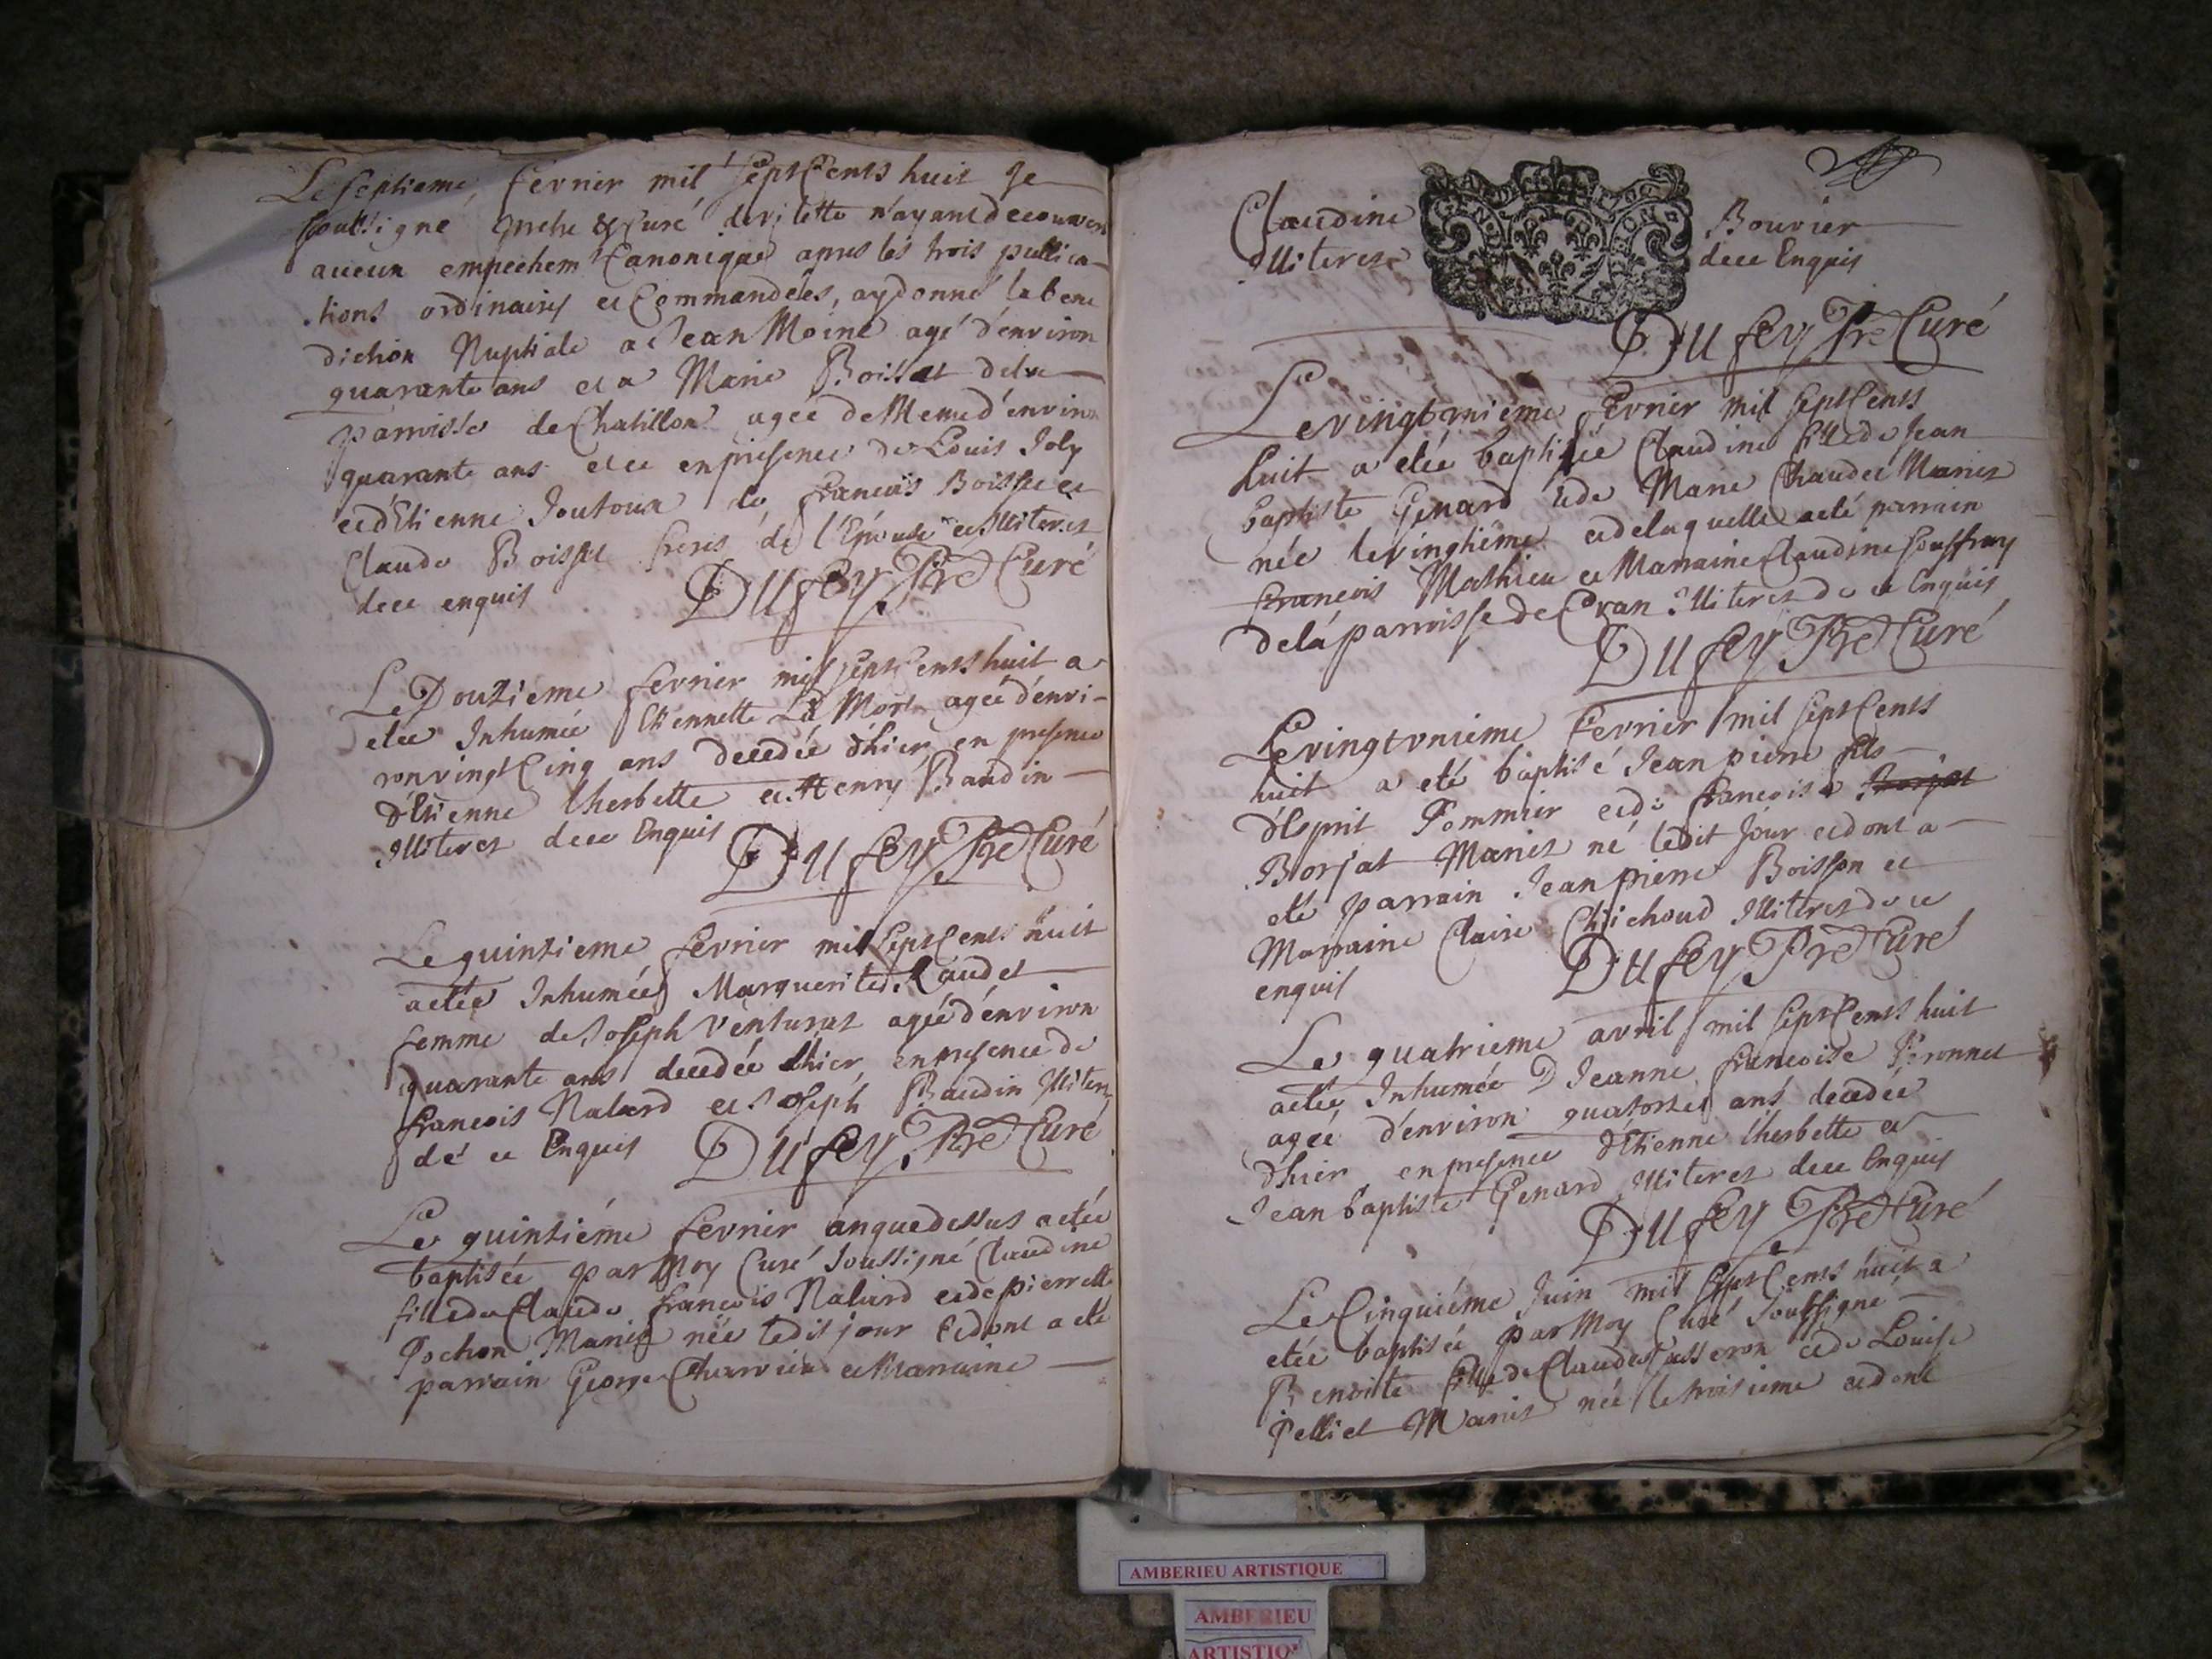 Le septieme fevrier mil sept Cents huit Je
soussigné prebre & Curé de vilette n'ayant decouvert
aucun empechem Canonique apres les trois publica-
tions ordinaires et Commandées, ay donné la bene
diction Nuptiale a Jean Moine agé d'environ
quarante ans et a Marie Boisset de la
parroisse de Chatillon agée de Meme d'environ
quarante ans et ce en presence de Louis Joly
et d'Etienne Joutoux de francois Boisset et
Claude Boisset freres de l'Epouse et Illiterez
de ce enquis
Dufey Pre Curé
Le Douzieme fevrier mil sept Cents huit a
etée Inhumée Etiennette La Mort agée d'envi-
ron vingt Cinq ans decedée d'hier en presence
d'Etienne lherbette et Henry Baudin
Illiterez de ce Enquis
Dufey Pre Curé
Le quinzieme fevrier mil sept Cents huit
a etée Inhumée Marguerite Raudet
femme de Joseph Venturet agée d'environ
quarante ans decedée d'hier, en presence de
francois Nalard et Joseph Baudin Illiterez
de ce Enquis
Dufey Pre Curé
Le quinziéme fevrier an que dessus a etée
baptisée par Moy Curé Soussigné Claudine
fille de Claude francois Nalard et de pierrette
Pochon Mariez née ledit jour et dont a eté
parrain George Charvieu et Marraine
Claudine Bouvier
Illiterez de ce Enquis
Dufey Pre Curé
Le vingt uniéme fevrier mil sept Cents
huit a etée baptisée Claudine fille de Jean
baptiste Genard et de Marie Chaudet Mariez
née le vingtiéme et de laquelle a eté parrain
francois Mathieu et Marraine Claudine Souffray
de la parroisse de Cran Illiterez de ce Enquis
Dufey Pre Curé
Le vingt uniéme fevrier mil sept Cents
huit a eté baptisé Jean pierre fils
d'Esprit Pommier et de francoise Borjat
Borjat Mariez né ledit Jour et dont a
eté parrain Jean pierre Boisson et
Marraine Claire Chichoud Illiterez de ce
enquis
Dufey Pre Curé
Le quatrieme avril mil sept Cents huit
a etée Inhumée D Jeanne francoise Peronnet
agée d'environ quatorze ans decedée
d'hier en presence d'Etienne lherbette et
Jean baptiste Genard Illiterez de ce Enquis
Dufey Pre Curé
Le Cinquiéme Juin mil sept Cents huit a
etée baptisée par Moy Curé Soussigné
Benoite fille de Claude Casseron et de Louise
Pelliet Mariez née le troisieme et dont
AMBERIEU ARTISTIQUE
AMBERIEU
ARTISTIQ